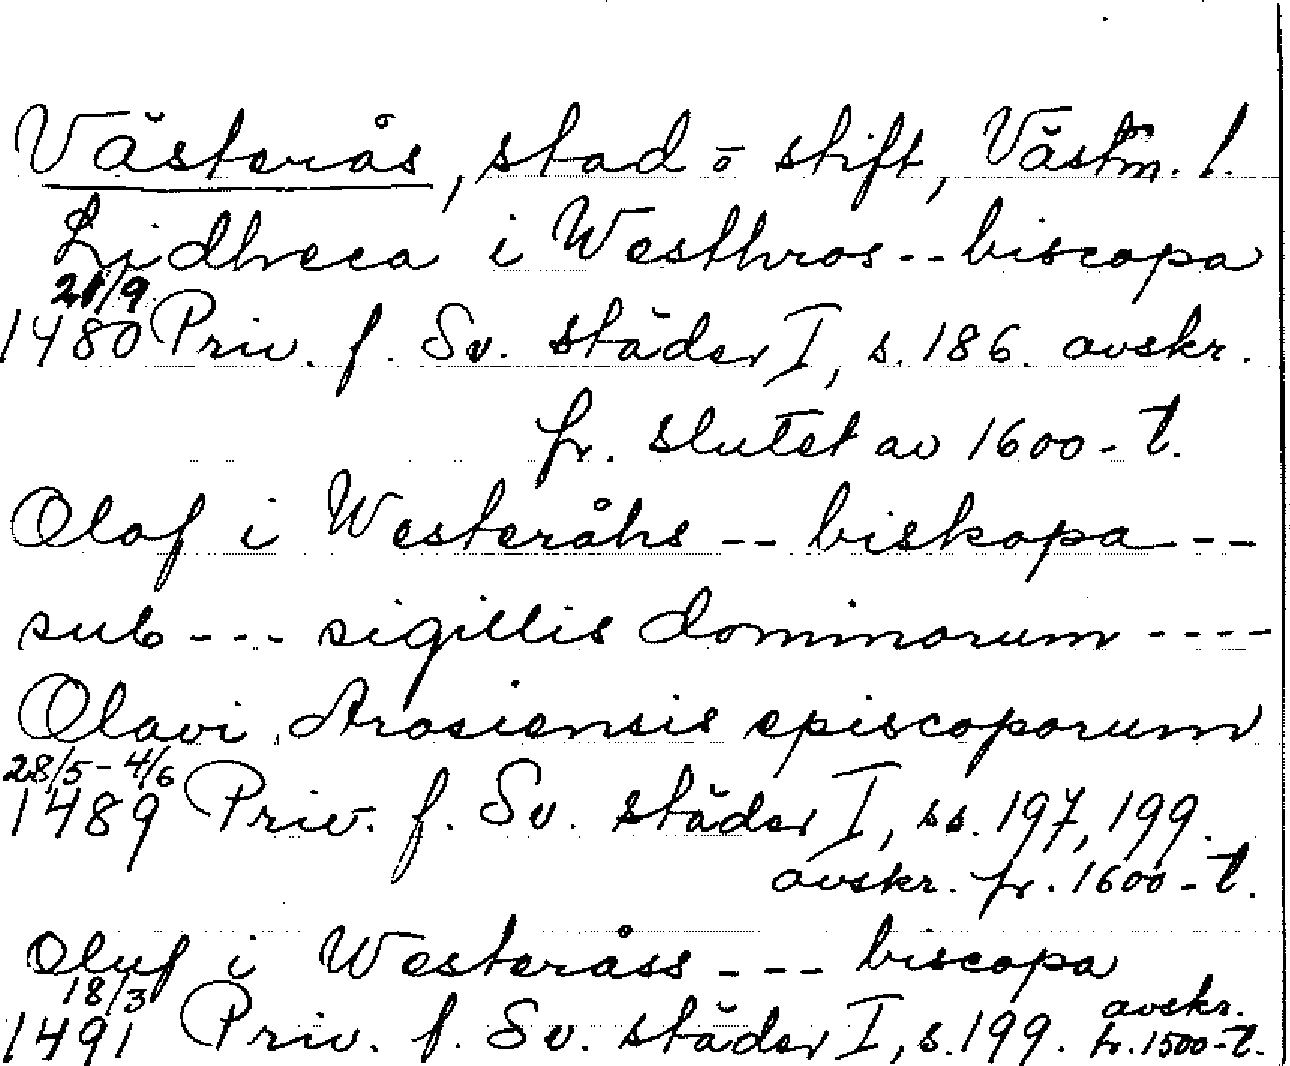 Västerås, stad o stift, Västm. l.
Lidhveca i Westhros -- biscopa
21/9
1480 Priv. f. Sv. städer I, s. 186. avskr.
fr. slutet av 1600-t.
Olof i Westeråhs -- biskopa --
sub --- sigillis dominorum ----
Olavi Arosiensis episcoporum
28/5-4/6
1489 Priv. f. Sv. städer I, ss. 197, 199.
avskr. fr. 1600-t.
Oluf i Westeråss --- biscopa
18/3
1491 Priv. f. Sv. städer I, s. 199. avskr. fr. 1500-t.